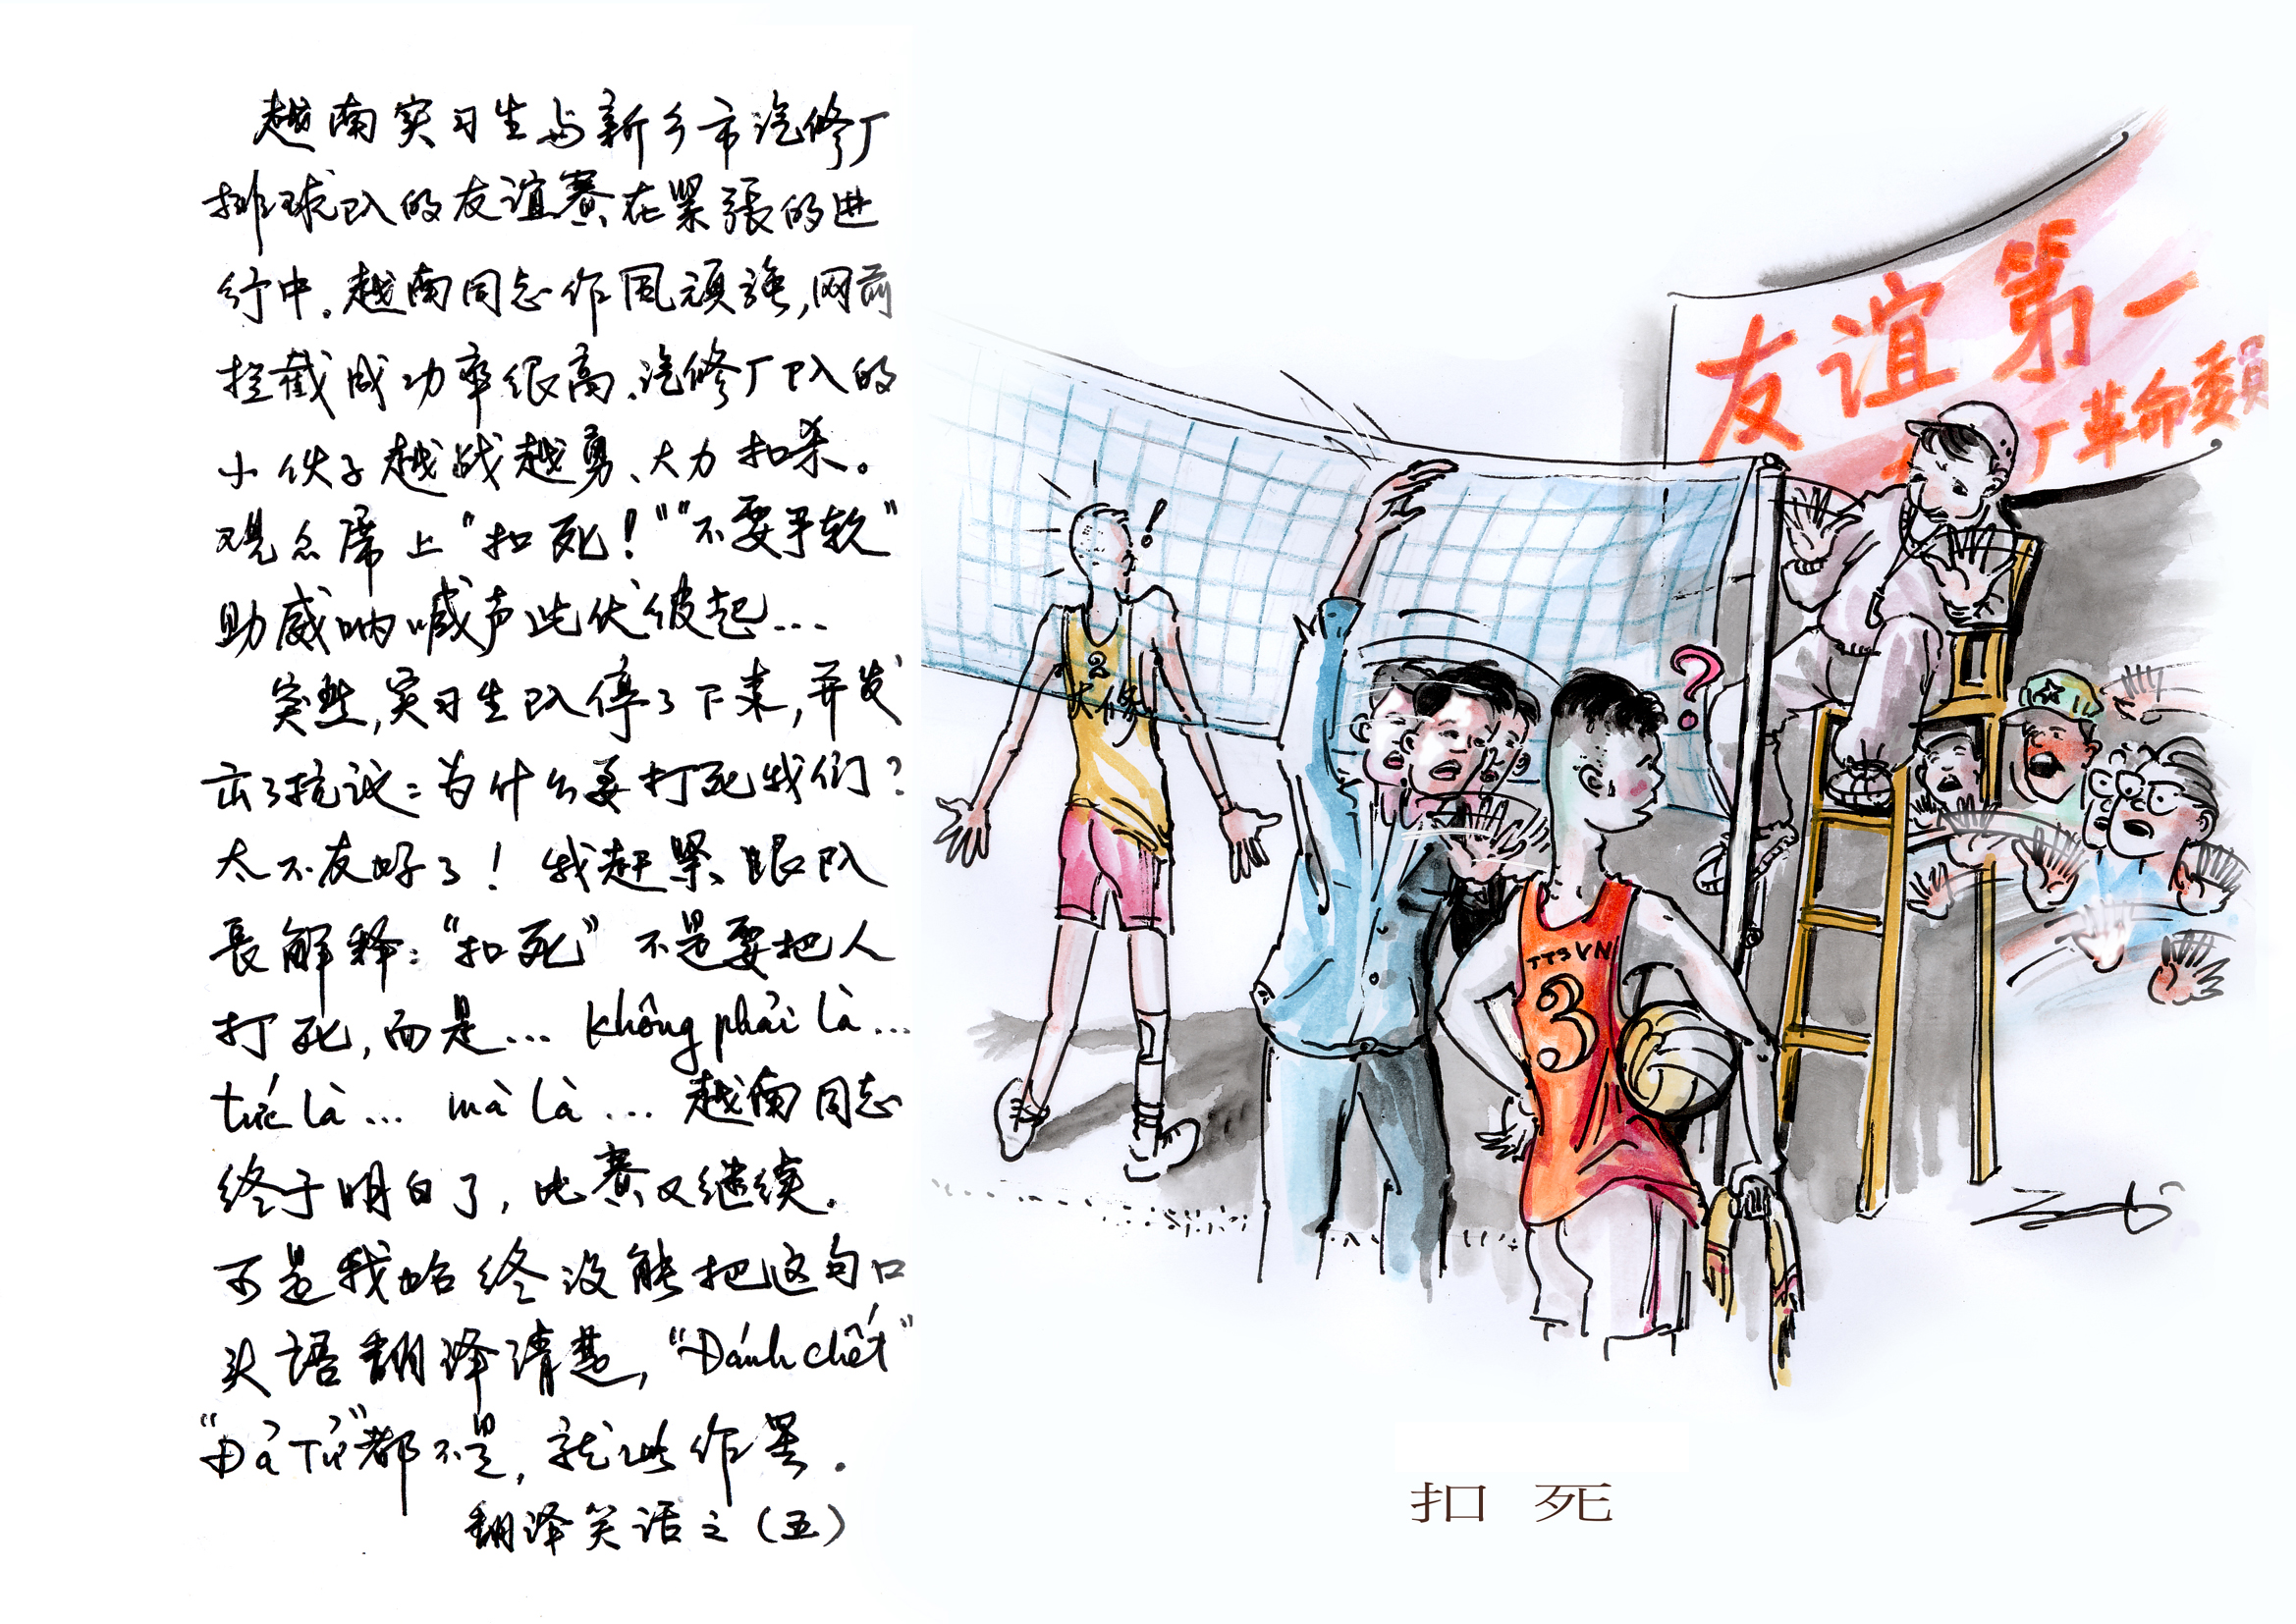 越南实习生与新乡市汽修厂
排球队的友谊赛在紧張的进
行中。越南同志作風頑強,网前
拦截成功率很高、汽修厂队的
小伙子越战越勇、大力扣杀。
观众席上“扣死!”“不要手软”
助威呐喊声此伏彼起...
突然,实习生队停了下来,并发
出了抗议:为什么要打死我们?
太不友好了!我赶緊跟队
長解释:“扣死”不是要把人
打死,而是... không phải là...
tức là... mà là... 越南同志
终于明白了,比赛又继续.
可是我始终没能把这句口
头語翻译清楚,“Đánh chết”
“Đả Tử”都不是,就此作罢.
翻译笑话之(五)
友谊第一
厂革命委員
2
大修
TTSVN
3
?
!
扣 死